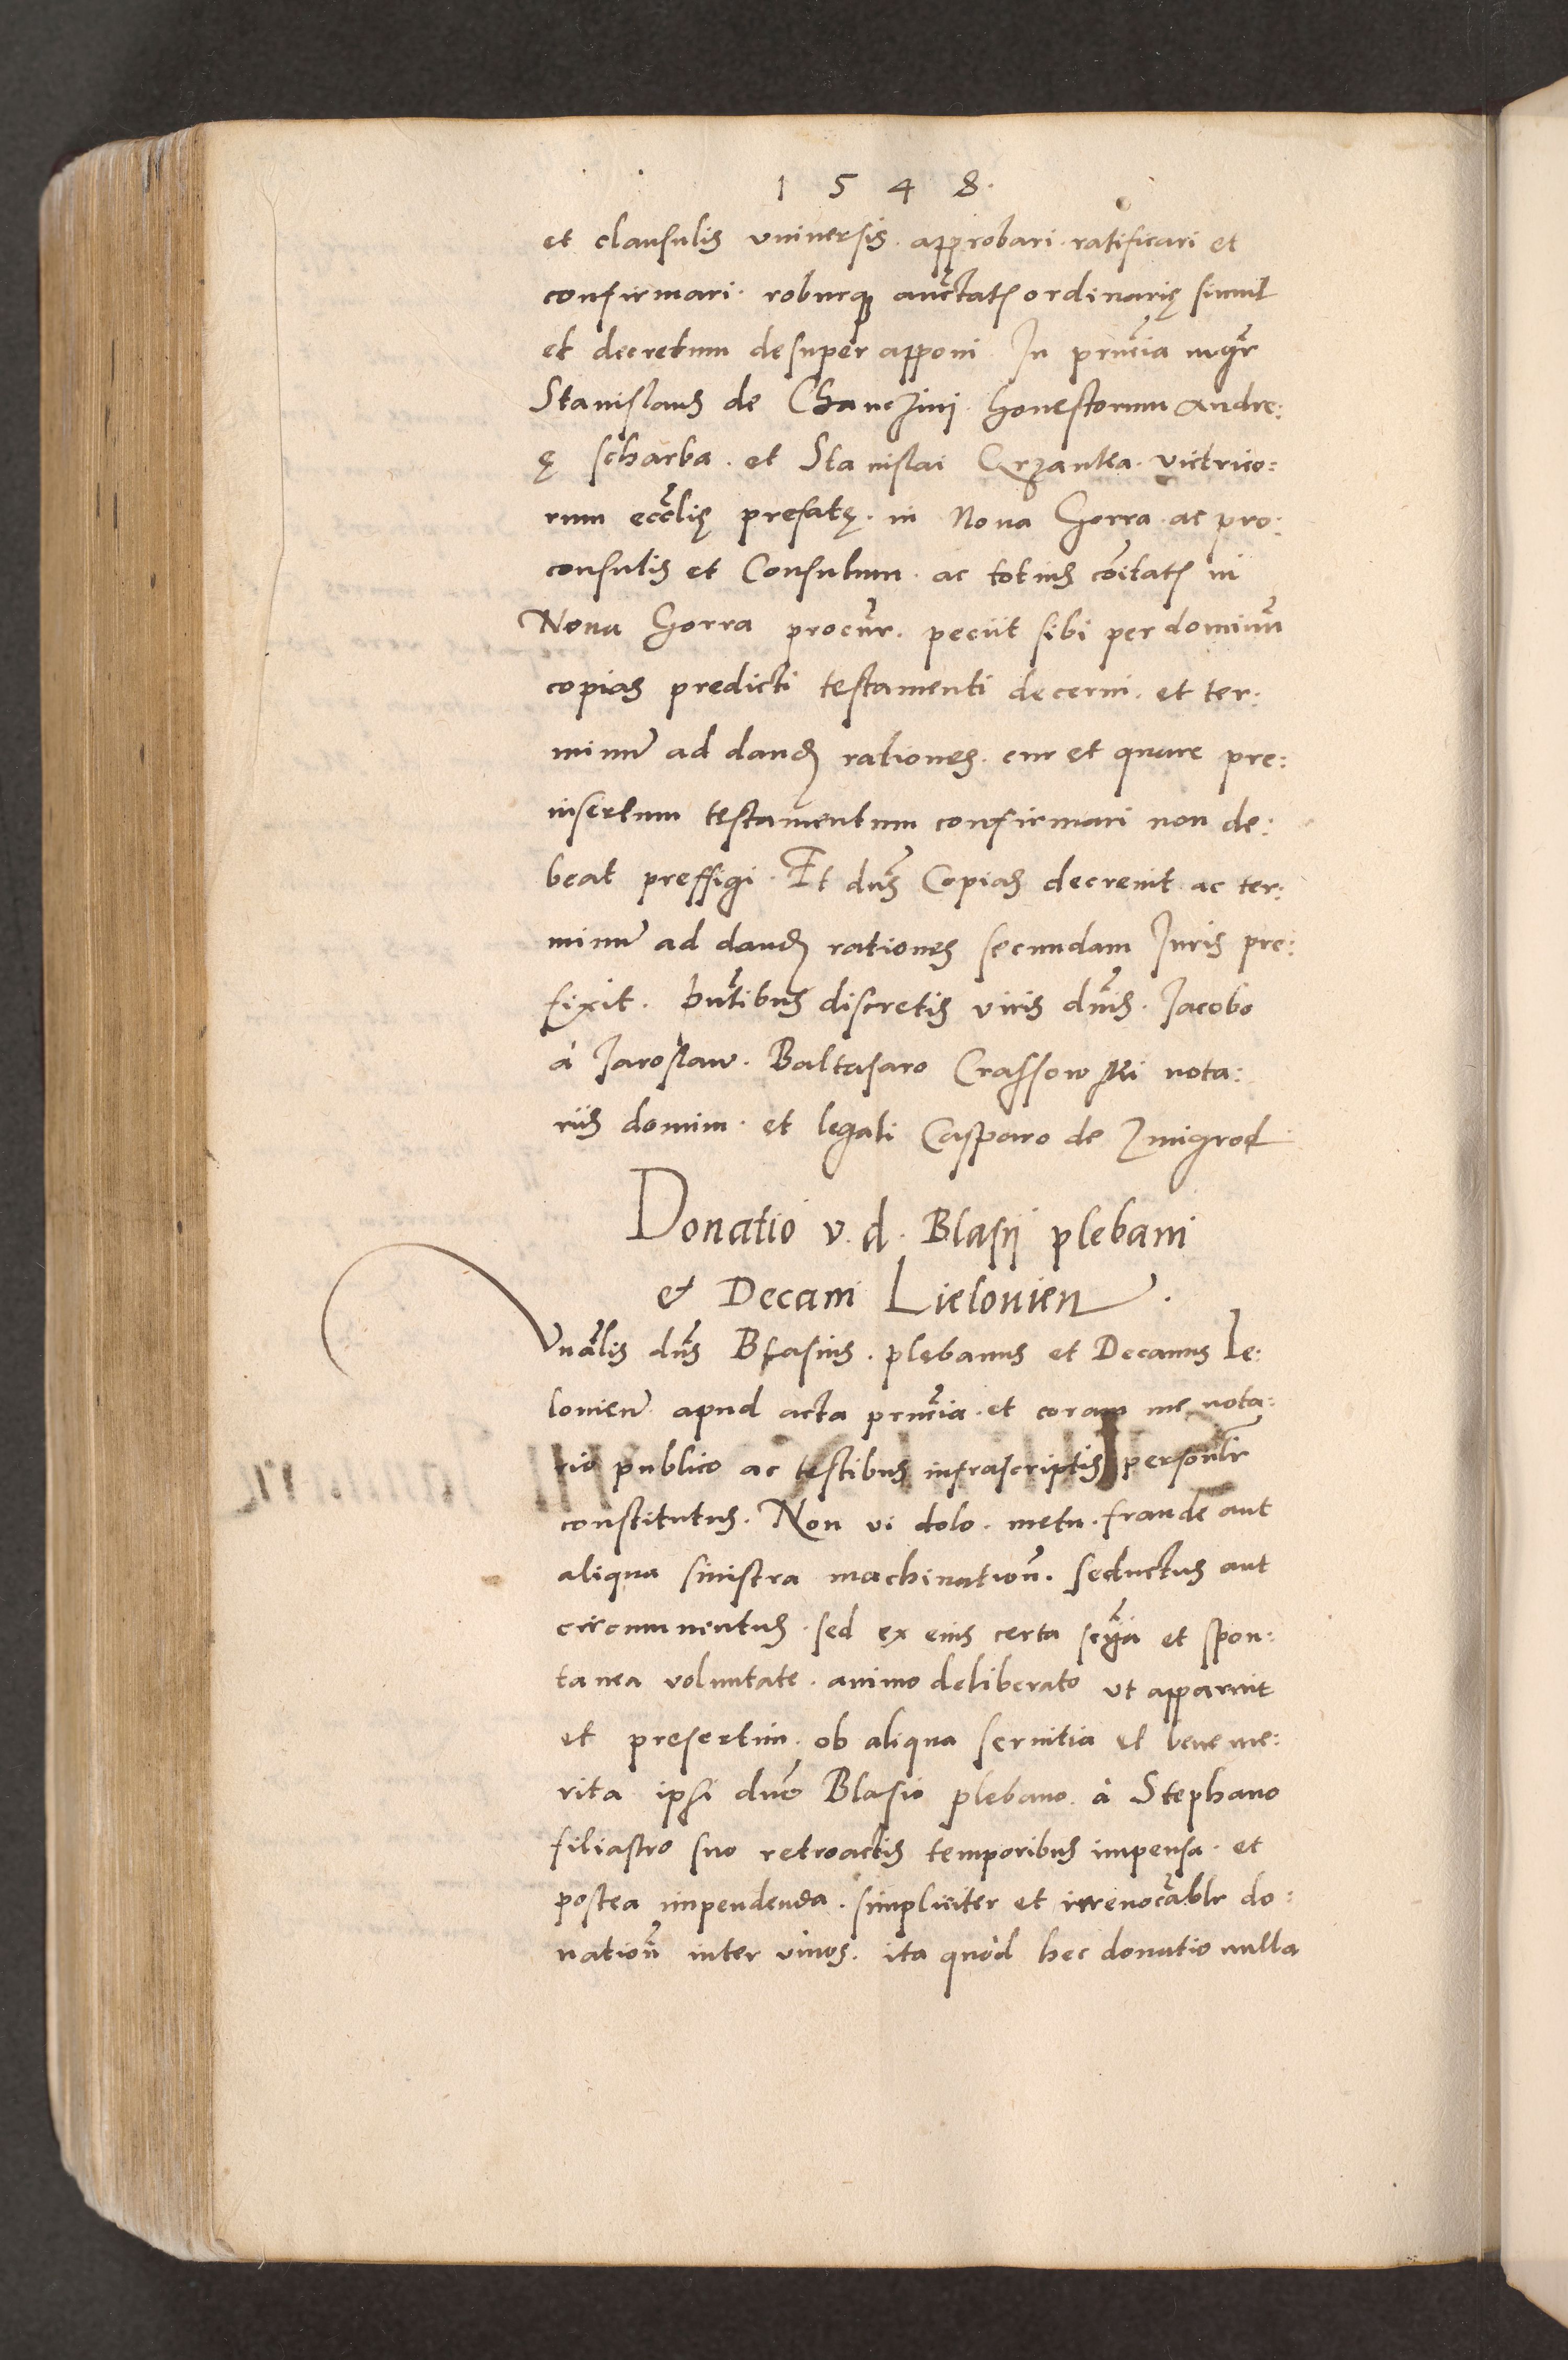 1548.
et clausulis vniuersis approbari ratificari et
confirmari. roburq̨ auc̃tatȩ ordinarię simul
et decretum desuper apponi. In pn̄cia mgr̄
Stanislaus de Chanczini honestorum Andre:
ę scharba. et Stanislai Crzantka. victrico:
rum eccłie̜ prefatę. in Noua Gorra. ac pro:
consulis et Consulum. ac totius cõitatȩ in
Noua Gorra procur̃. peciit sibi per dominũ
copias predicti testamenti decerni. et ter:
minũ ad dand̨ rationes. cur et quare pre:
insertum testamentum confirmari non de:
beat preffigi. Et dñs Copias decreuit ac ter:
minũ ad dand̨ rationes secundam Iuris pre:
fixit. pñtibus discretis viris dñis. Jacobo
à Jaroslaw. Baltasaro Crassowski nota:
riis domini. et legali Casparo de Zmigrod
Donatio v. d. Blasij plebani
et Decani Lielouien̄.
Vnãlis dñs Blasius. plebanus et Decanus Le:
louien̄ apud acta pñcia. et coram me nota:
rio publico ac testibus infrascriptis personlr̃
constitutus. Non vi dolo. metu. fraude aut
aliqua sinistra machination̄. seductus aut
circumuentus. sed ex eius certa scĩa et spon:
tanea voluntate. animo deliberato vt apparuit
et presertim. ob aliqua seruitia et beneme:
rita ipsi dño Blasio plebano. à Stephano
filiastro suo retroactis temporibus impensa. et
postea impendenda. simpliciter et irreuocãblr do:
nation̄ inter viuos. ita quòd hec donatio nulla